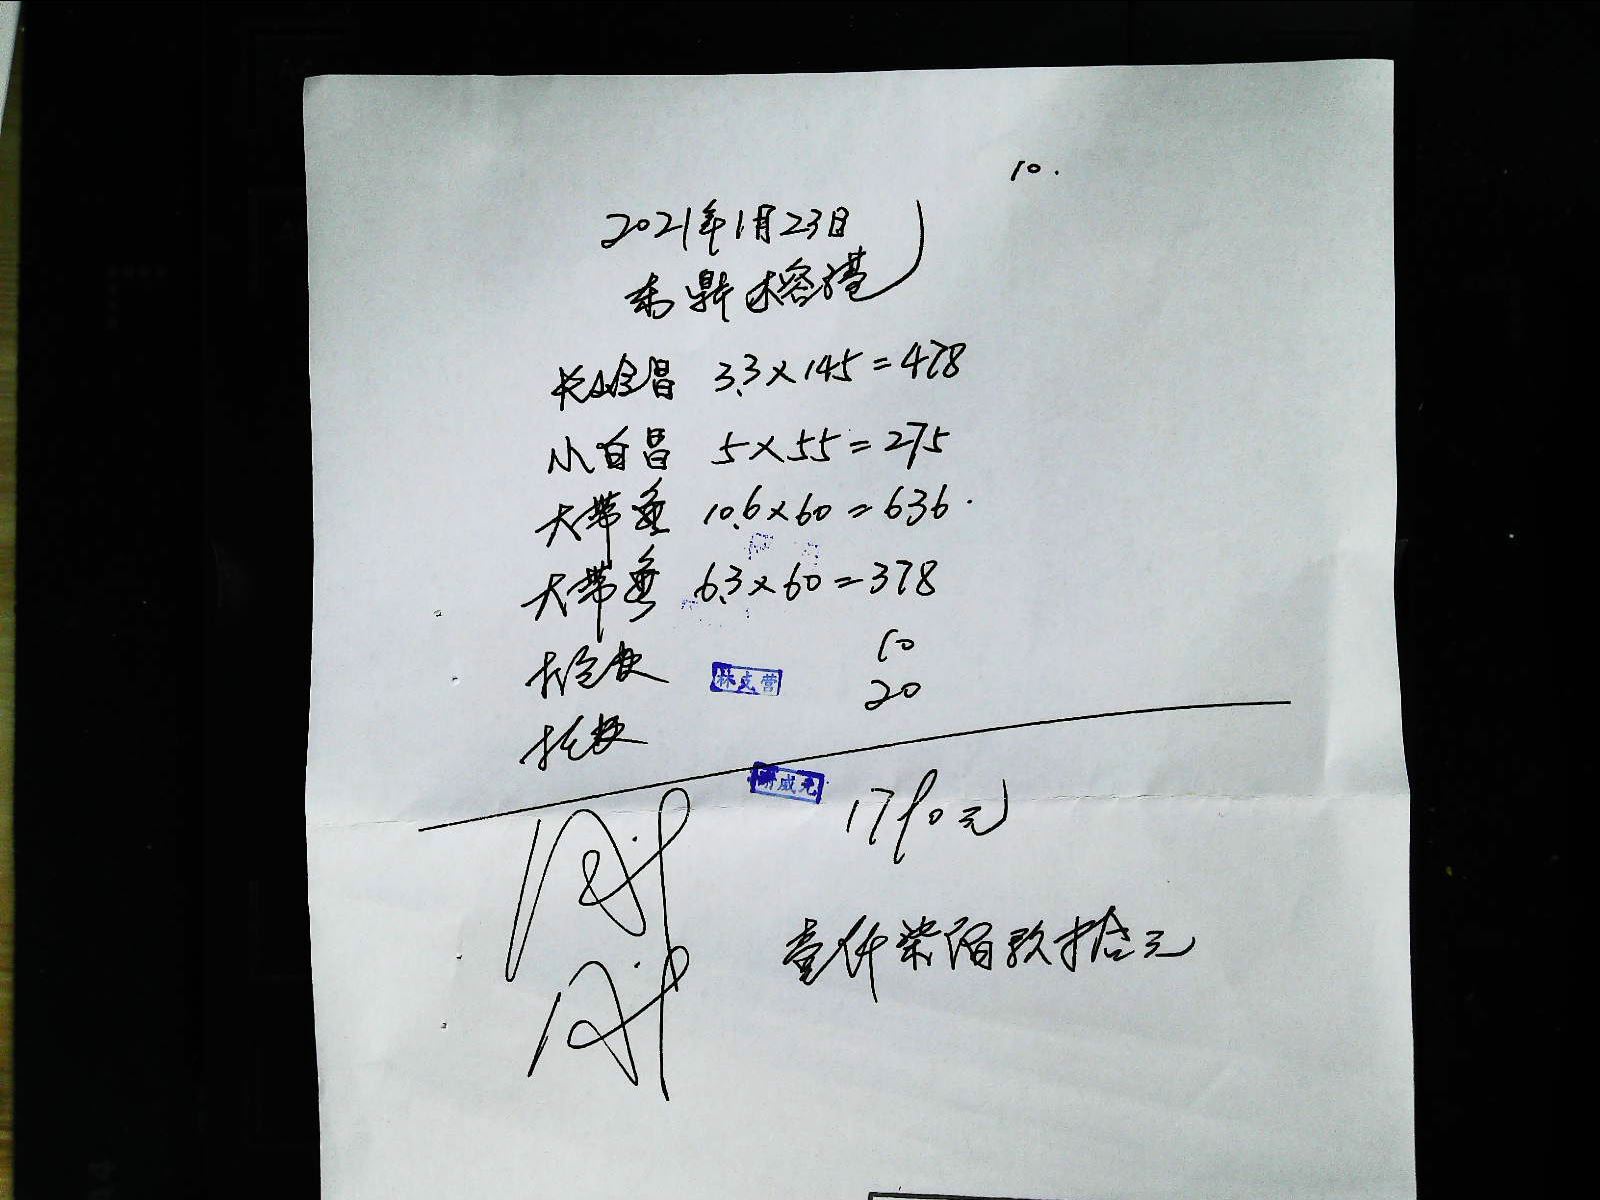 10.
2021年1月23日
东鼎榕港
长山仓昌 3.3×145=478
小白昌 5×55=275
大带鱼 10.6×60=636.
大带鱼 6.3×60=378
10
林贞营
20
威
1790元
壹仟柒佰玖拾元